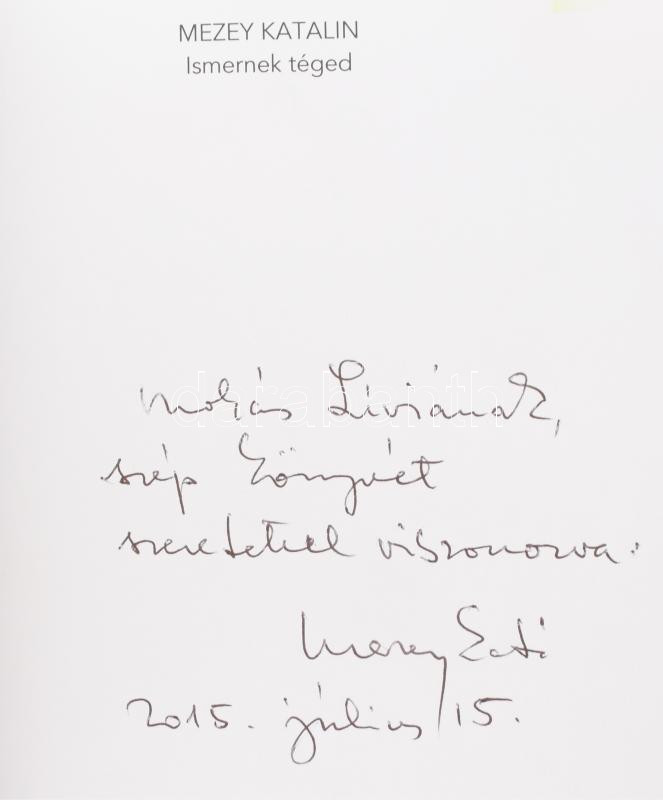 MEZEY KATALIN
Ismernek téged
Mohás Líviának,
szép könyvét
szeretettel viszonozva:
Mezey Kati
2015. július 15.
darabanth